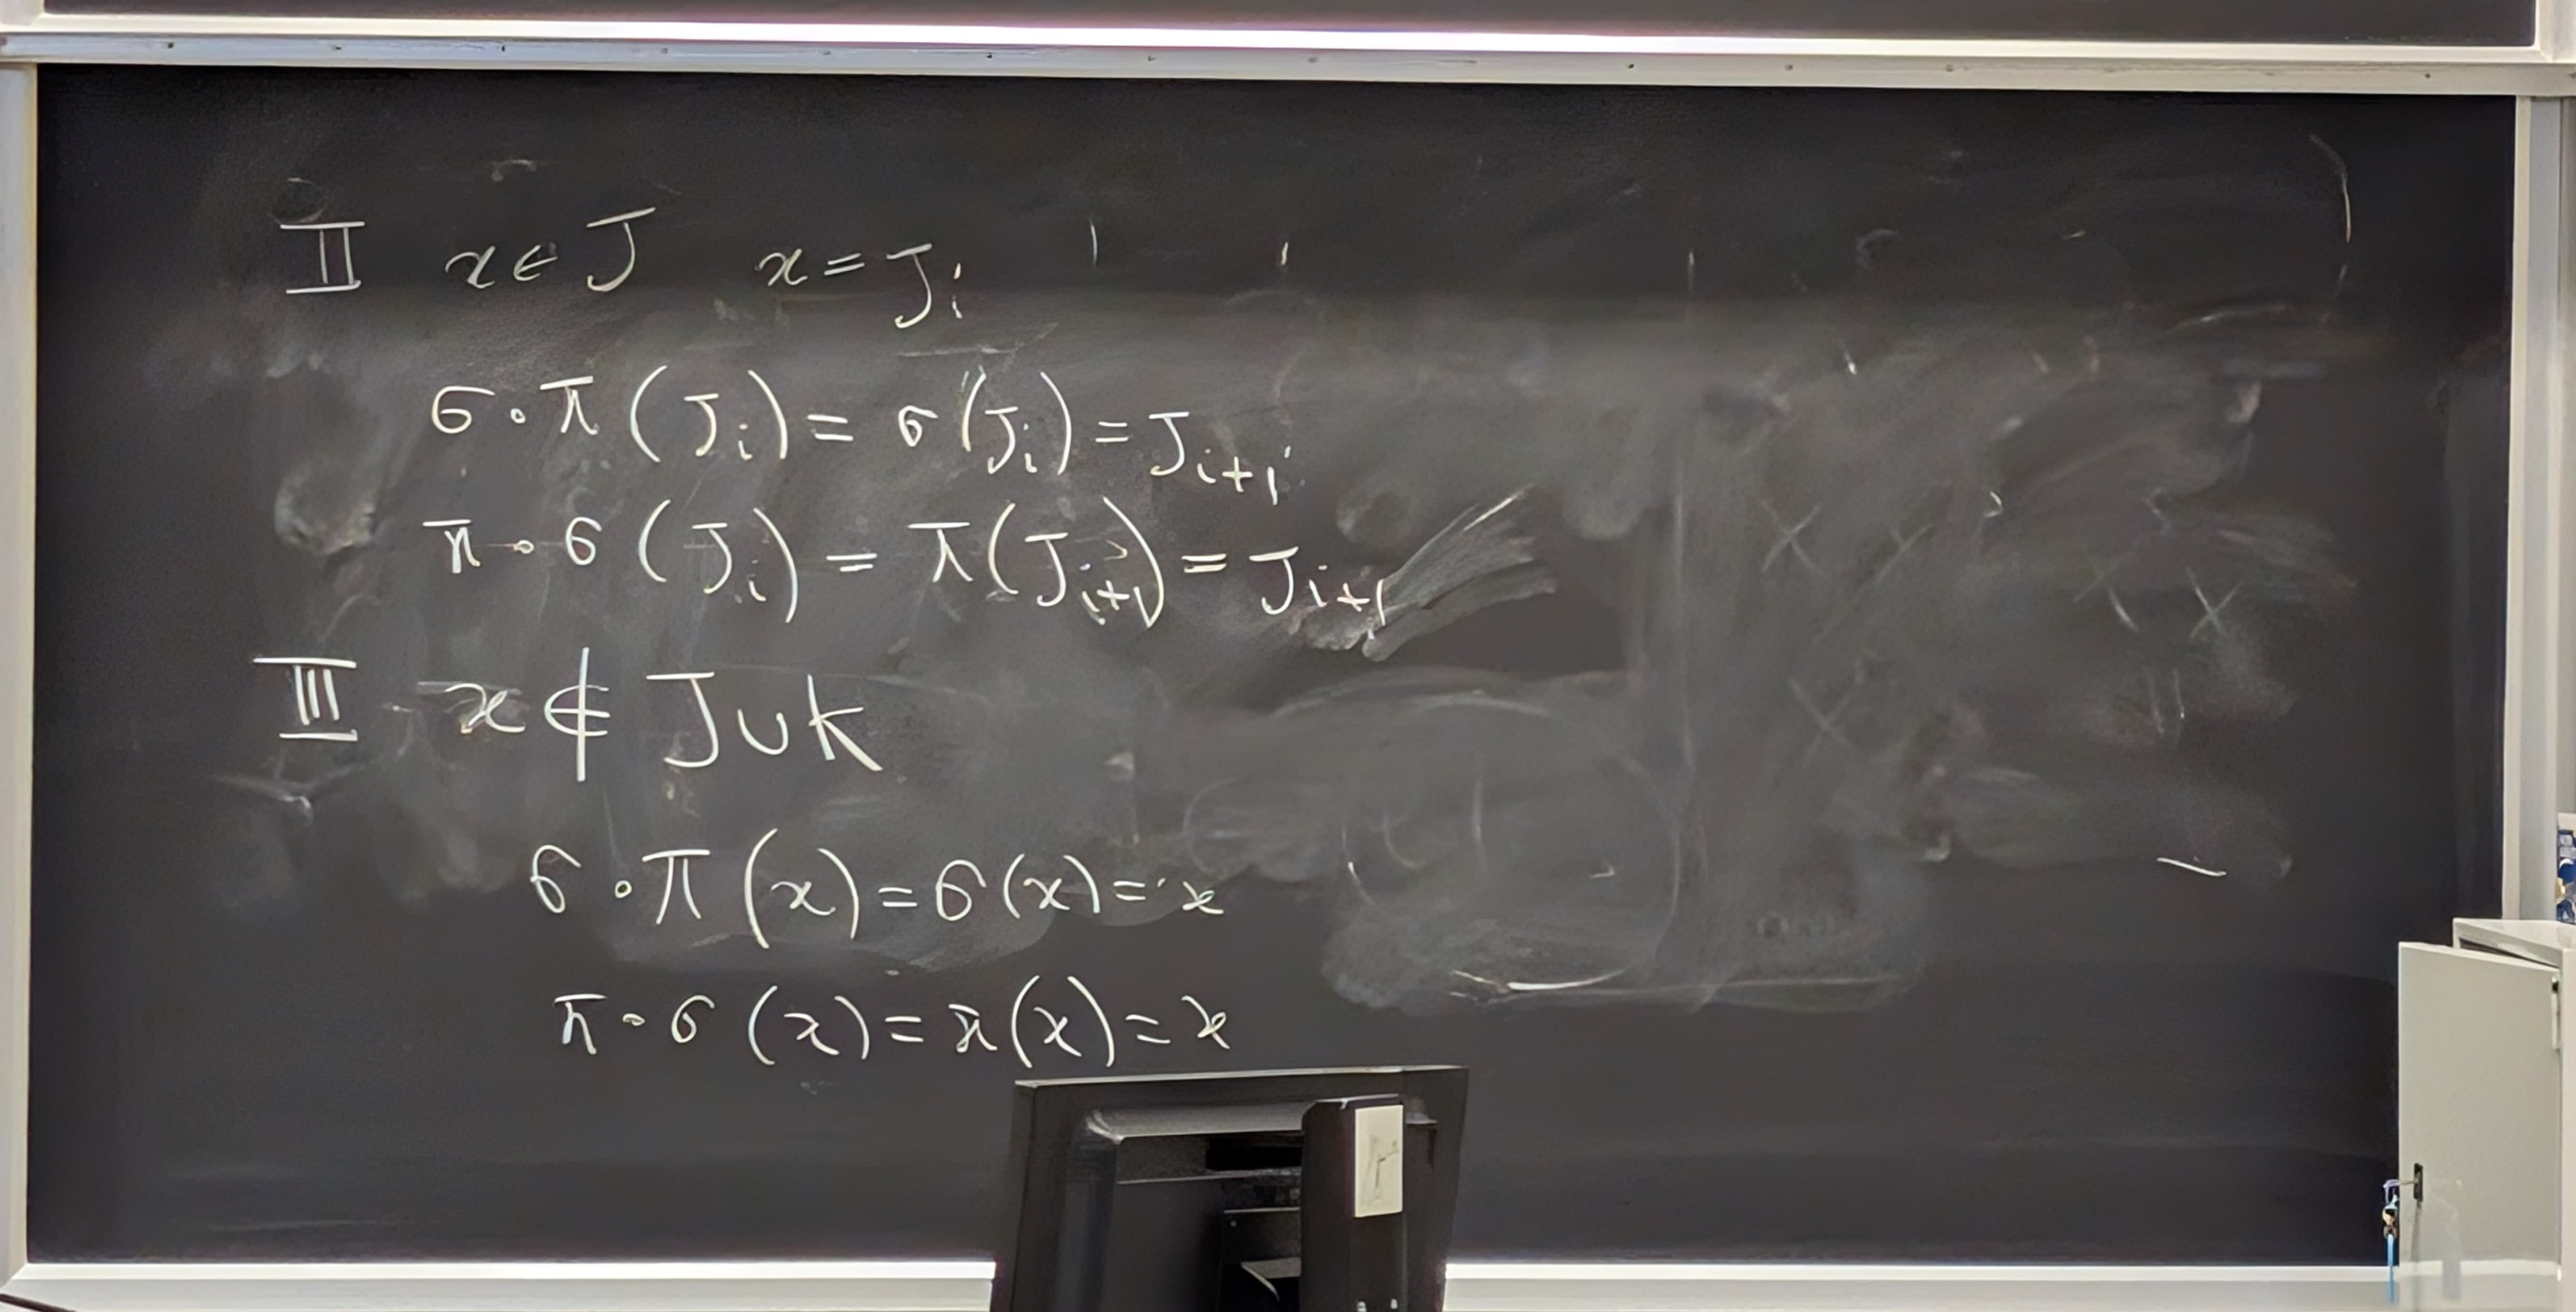 II x ∈ J x = J_i
σ ∘ π (J_i) = σ(J_i) = J_{i+1}
π ∘ σ (J_i) = π(J_{i+1}) = J_{i+1}
III x ∉ J ∪ K
σ ∘ π (x) = σ(x) = x
π ∘ σ (x) = π(x) = x